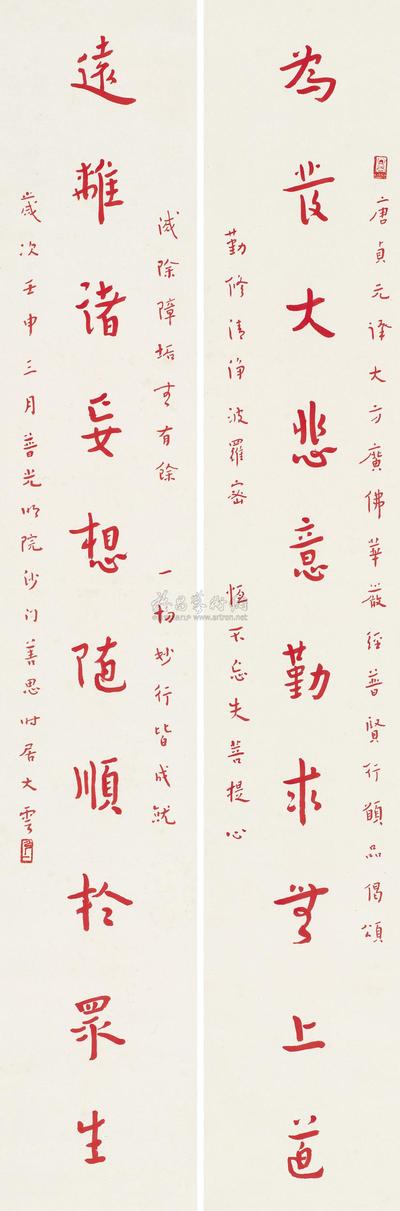 唐貞元譯大方廣佛華嚴經普賢行願品偈頌
為發大悲意勤求無上道
勤修清淨波羅密 恆不忘失菩提心
滅除障垢無有餘 一切妙行皆成就
遠離諸妄想隨順於眾生
歲次壬申三月普光明院沙門善思時居大雲
www.artron.net